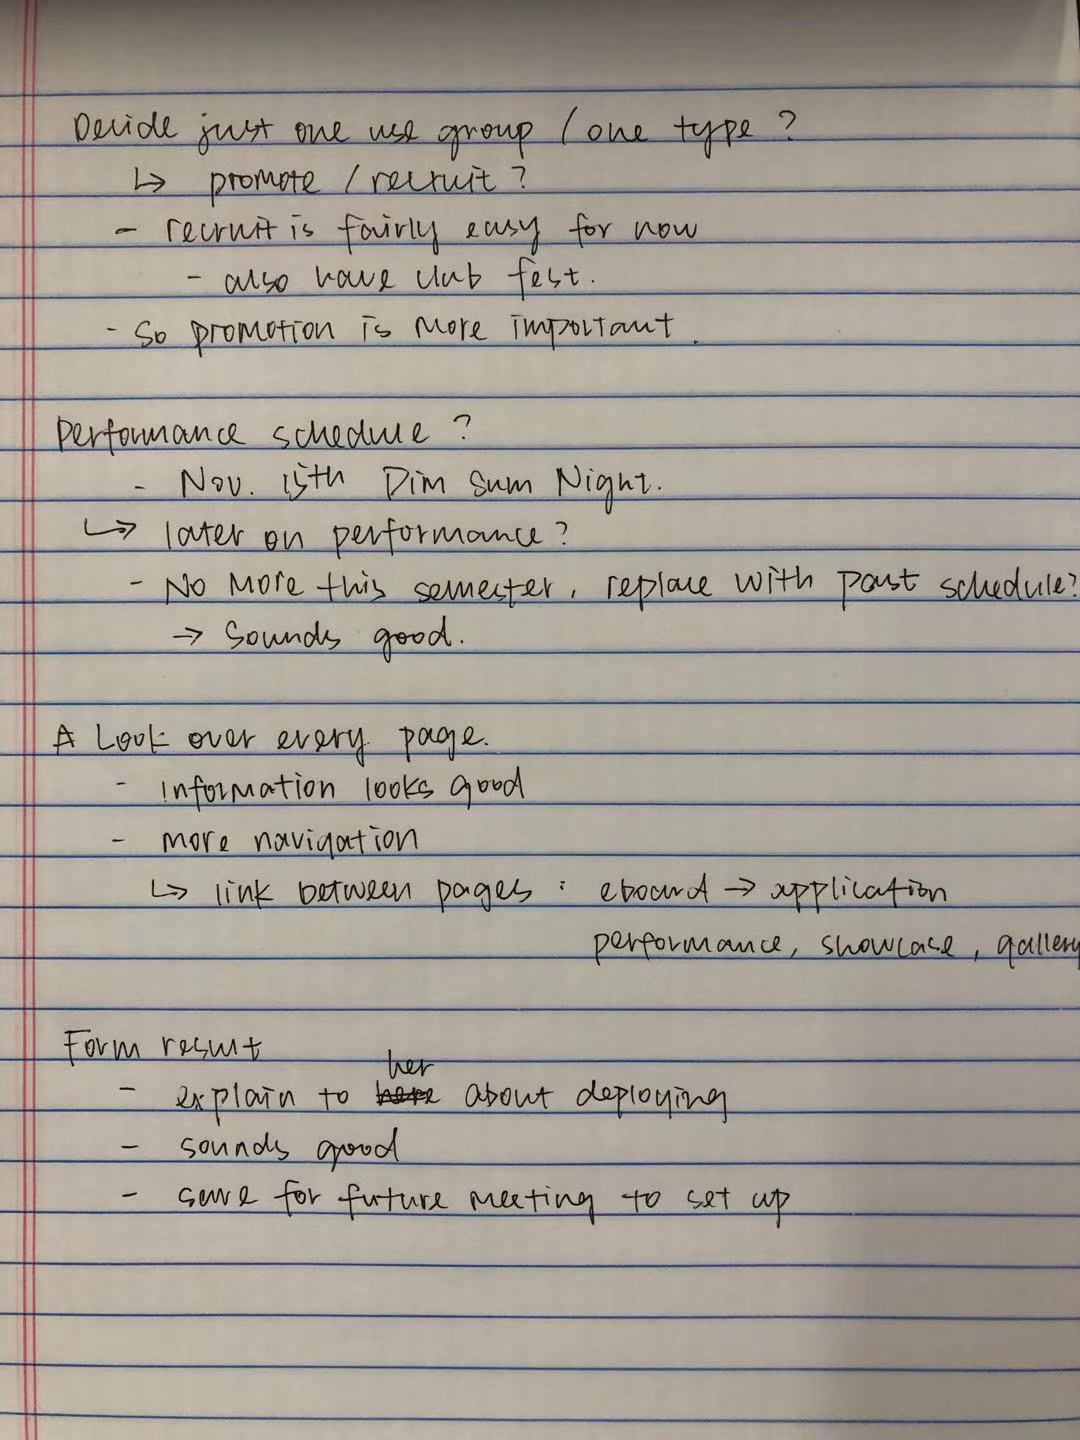 Decide just one use group / one type ?
↳ promote / recruit ?
- recruit is fairly easy for now
- also have club fest.
- So promotion is more important.
Performance schedule ?
- Nov. 15th Dim Sum Night.
↳ later on performance ?
- No more this semester, replace with past schedule?
→ Sounds good.
A Look over every page.
- information looks good
- more navigation
↳ link between pages : eboard → application
performance, showcase, gallery
Form result
her
- explain to here about deploying
- sounds good
- save for future meeting to set up